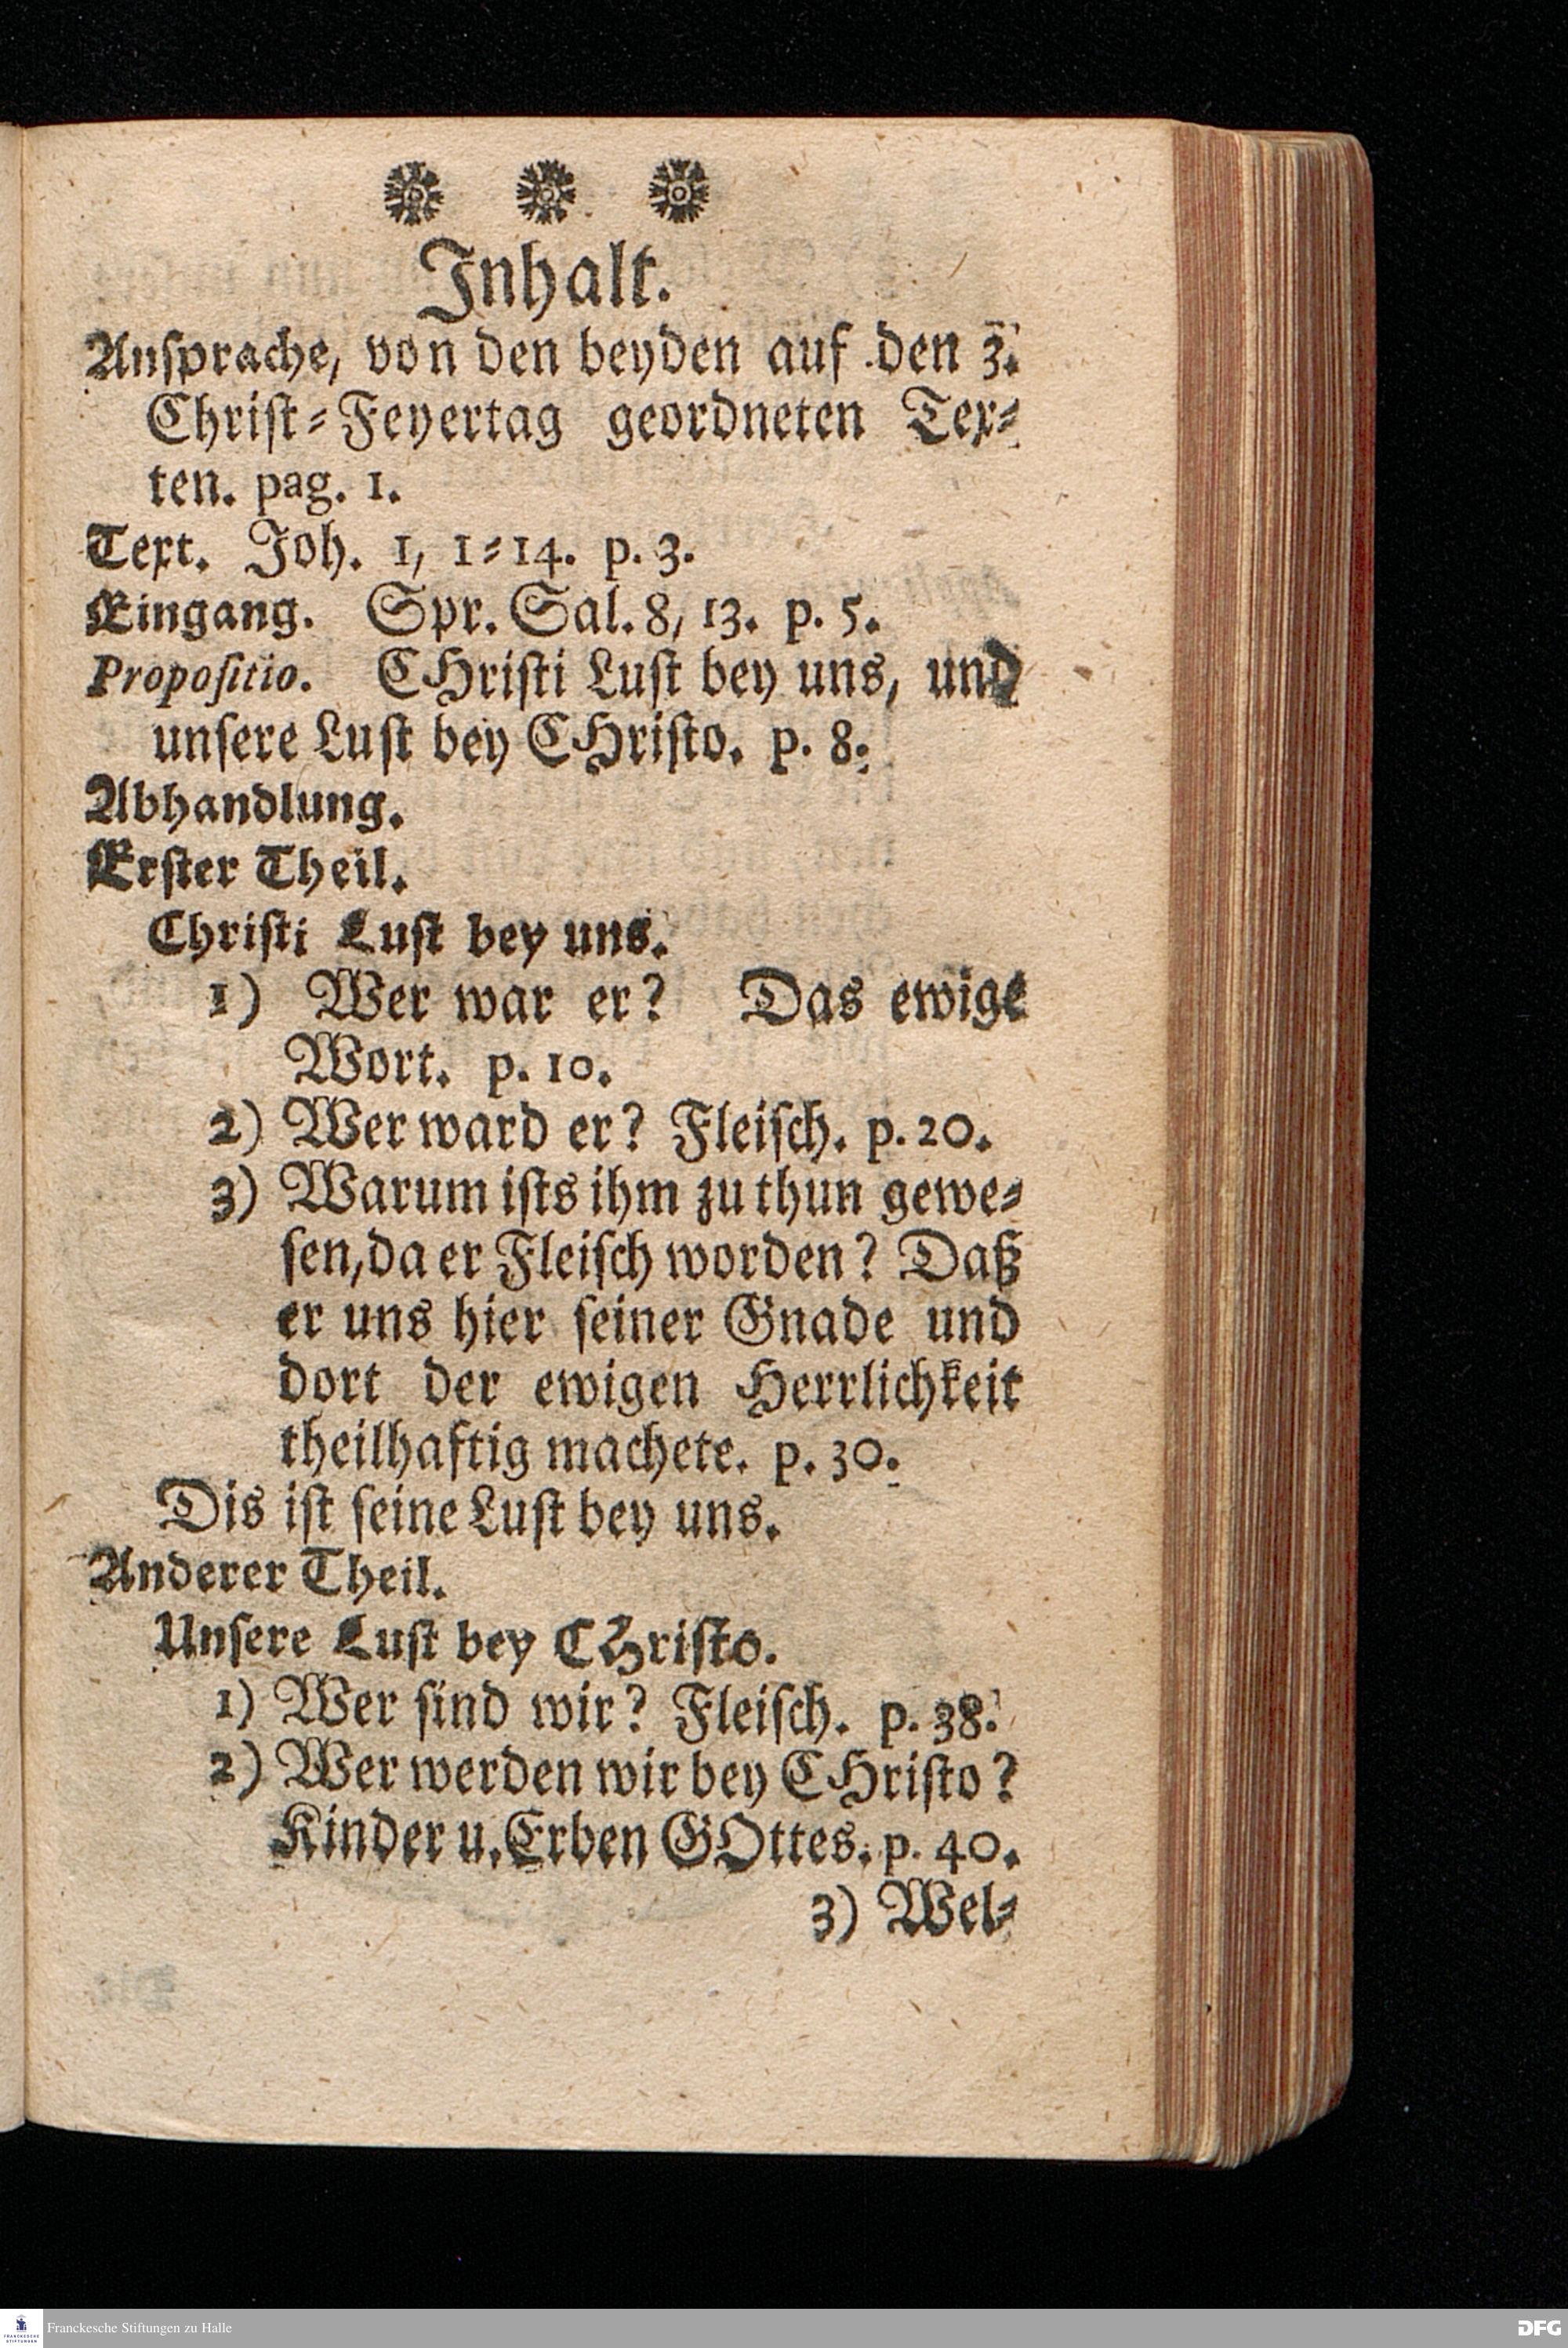 Inhalt.
Ansprache, von den beyden auf den 3.
Christ-Feyertag geordneten Tex-
ten. pag. 1.
Text. Joh. 1, 1-14. p. 3.
Eingang. Spr. Sal. 8, 13. p. 5.
Propositio. CHristi Lust bey uns, und
unsere Lust bey CHristo. p. 8.
Abhandlung.
Erster Theil.
Christi Lust bey uns.
1) Wer war er? Das ewige
Wort. p. 10.
2) Wer ward er? Fleisch. p. 20.
3) Warum ists ihm zu thun gewe-
sen, da er Fleisch worden? Daß
er uns hier seiner Gnade und
dort der ewigen Herrlichkeit
theilhaftig machete. p. 30.
Dis ist seine Lust bey uns.
Anderer Theil.
Unsere Lust bey CHristo.
1) Wer sind wir? Fleisch. p. 38.
2) Wer werden wir bey CHristo?
Kinder u. Erben GOttes. p. 40.
3) Wel-
FRANCKESCHE
STIFTUNGEN
Franckesche Stiftungen zu Halle
DFG